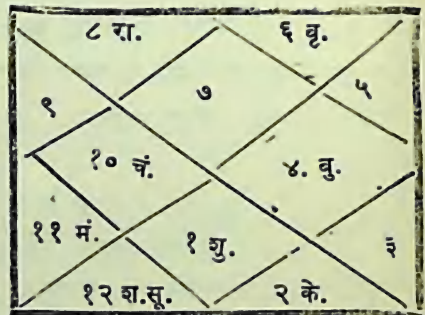 ८ रा. ६ वृ.
९ ७ ५
१० चं. ४. बु.
११ मं. १ शु. ३
१२ श.सू. २ के.